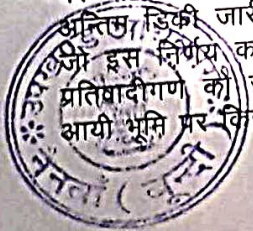 अन्तिम डिक्री जारी
जो इस निर्णय क
प्रतिवादीगण की
आयी भूमि पर कि
नैनवां (बून्दी)